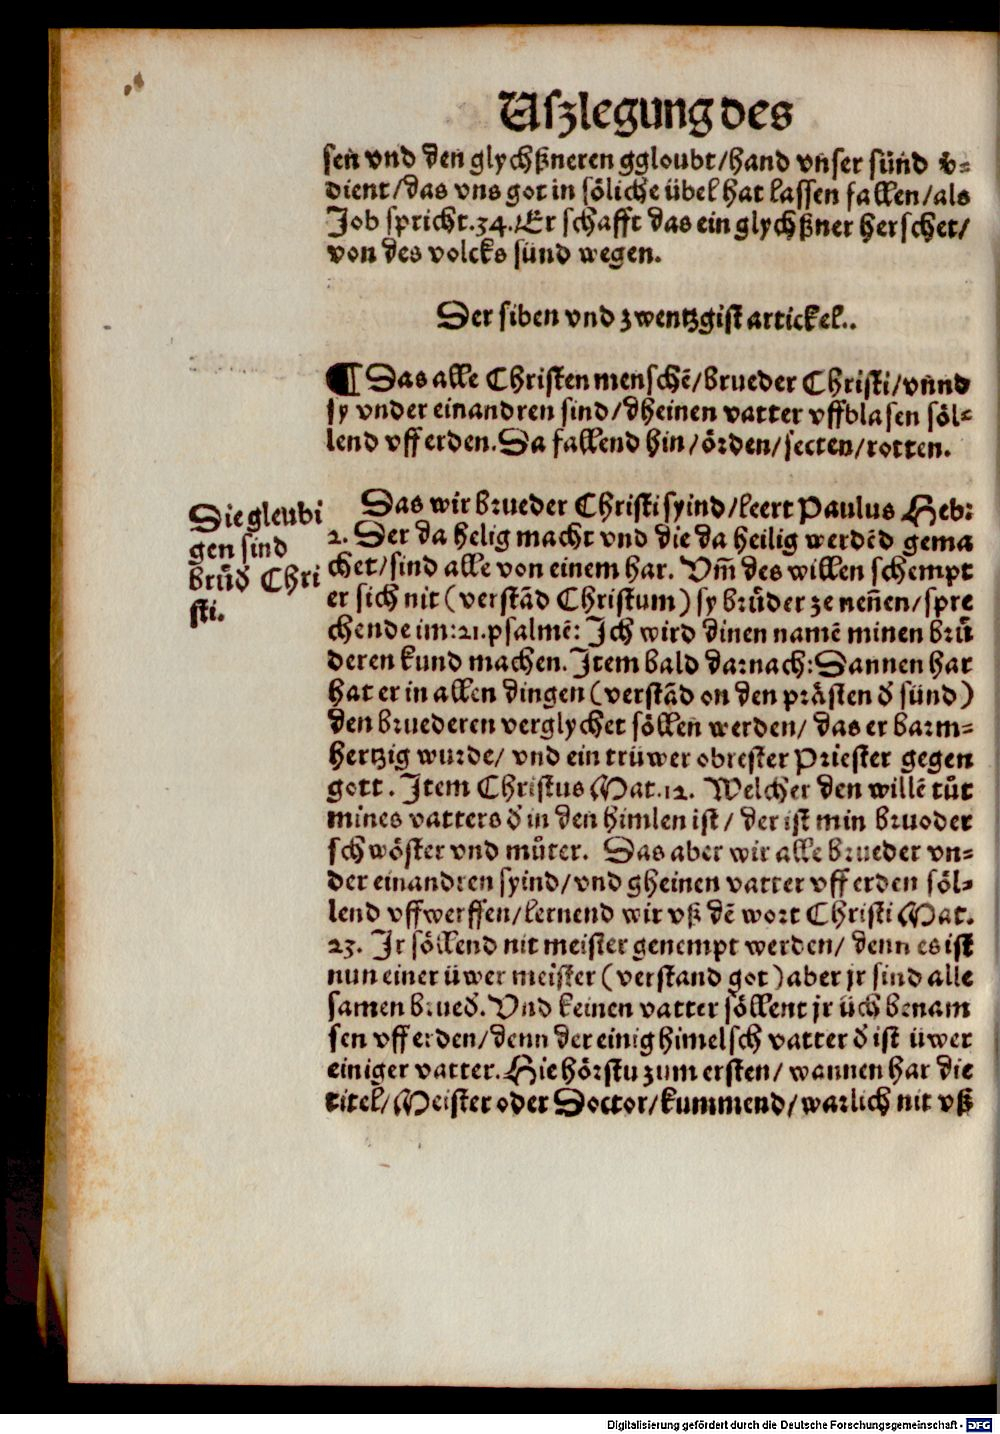 Uſzlegung des
ſen vnd den glychßneren ggloubt/hand vnſer ſünd v̄-
dient/das vns got in ſöliche übel hat laſſen fallen/als
Job ſpricht.34.Er ſchafft das ein glychßner herſchet/
von des volcks ſünd wegen.
Der ſiben vnd zwentzgiſt artickel..
¶ Das alle Chriſten menſchē/brueder Chriſti/vnnd
ſy vnder einandren ſind/dheinen vatter vffblaſen ſöl-
lend vff erden.Da fallend hin/örden/ſecten/rotten.
Die gleubi
gen ſind
brůd̄ Chri
ſti.
Das wir brueder Chriſti ſyind/leert Paulus Heb:
2. Der da helig macht vnd die da heilig werdēd gema
chet/ſind alle von einem har. Vm̄ des willen ſchempt
er ſich nit (verſtād Chriſtum) ſy brůder ze neñen/ſpre
chende im:21.pſalmē: Ich wird dinen namē minen brů
deren kund machen. Item bald darnach:Dannen har
hat er in allen dingen (verſtād on den präſten d̄ ſünd)
den bruederen verglychet ſöllen werden/ das er barm-
hertzig wurde/ vnd ein trüwer obreſter Prieſter gegen
gott. Item Chriſtus Mat.12. Welcher den willē tůt
mines vatters d̄ in den himlen iſt/ der iſt min bruoder
ſchwöſter vnd můter. Das aber wir alle brueder vn-
der einandren ſyind/vnd gheinen vatter vff erden ſöl-
lend vffwerffen/lernend wir vß dē wort Chriſti Mat.
23. Ir ſöllend nit meiſter genempt werden/ denn es iſt
nun einer üwer meiſter (verſtand got) aber jr ſind alle
ſamen brued̄. Vnd keinen vatter ſöllent jr üch benam
ſen vff erden/denn der einig himelſch vatter d̄ iſt üwer
einiger vatter. Hie hörſtu zum erſten/ wannen har die
titel/Meiſter oder Doctor/kummend/warlich nit vß
Digitalisierung gefördert durch die Deutsche Forschungsgemeinschaft - DFG